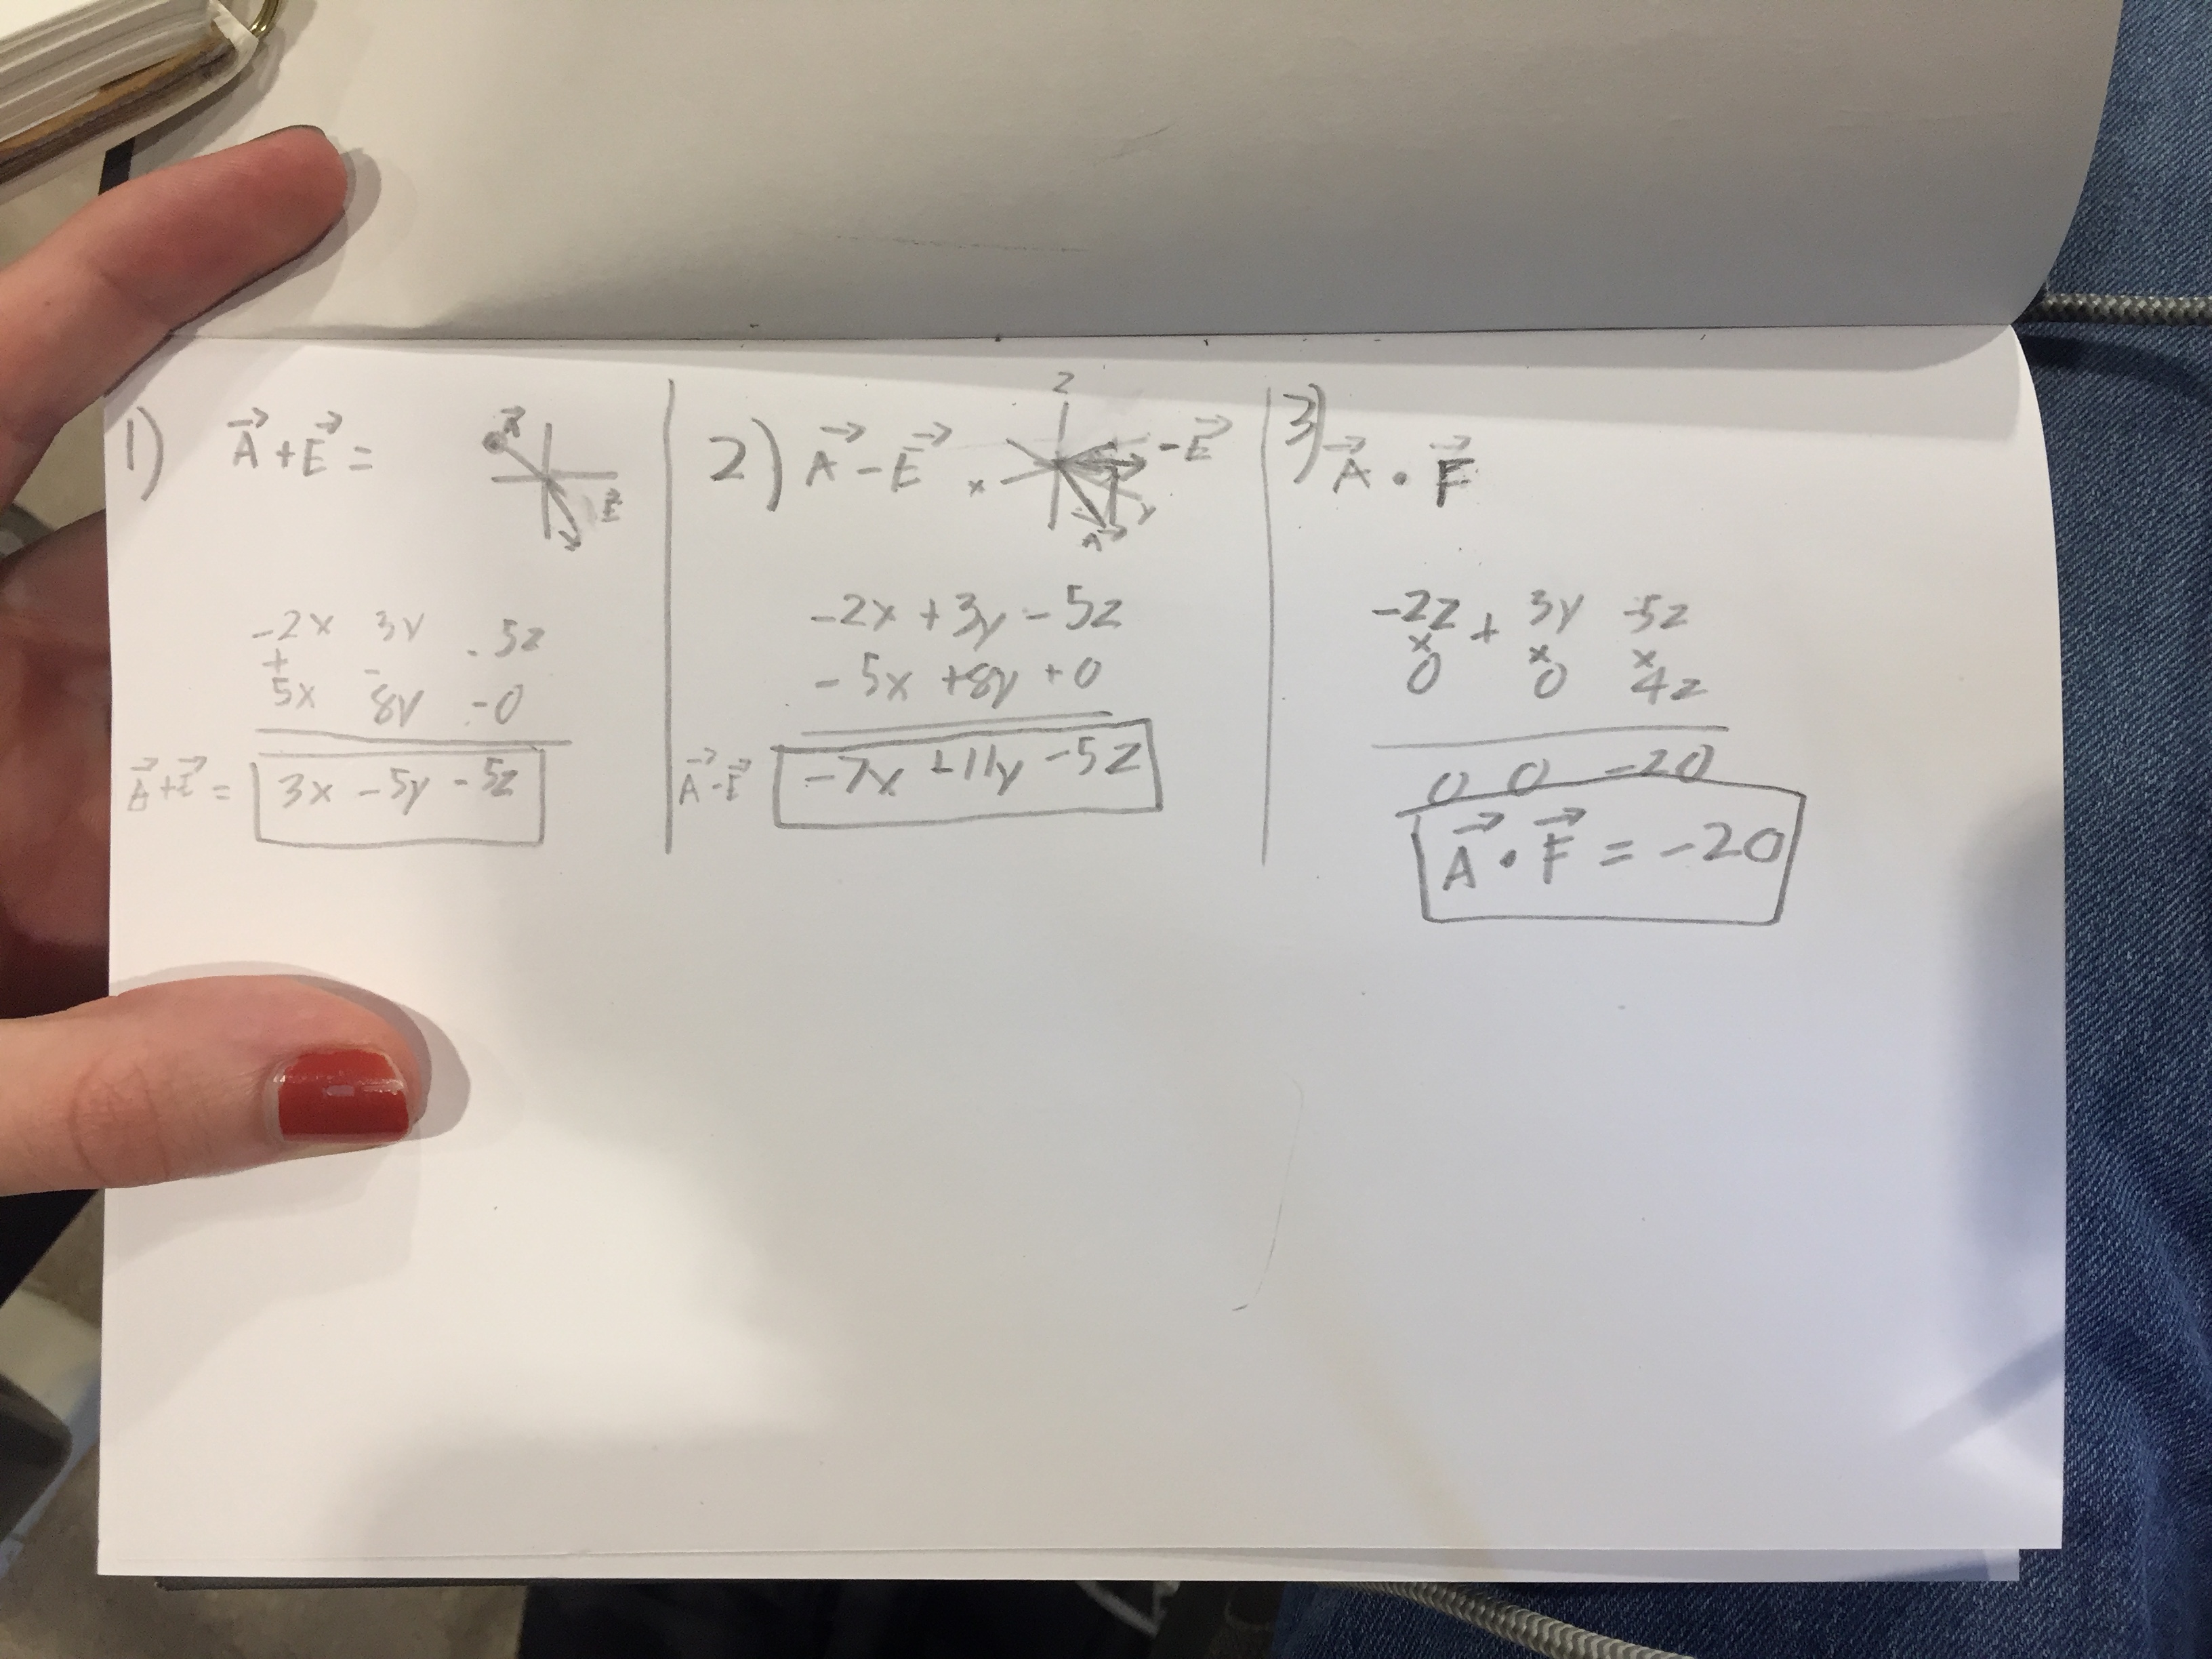 1) A + E =
A
E
-2x 3y - 5z
+ -
5x 8y - 0
A + E =
3x - 5y - 5z
2) A - E
z
x
y
-E
A
-2x + 3y - 5z
- 5x + 8y + 0
A - E
-7x + 11y - 5z
3) A • F
-2z + 3y -5z
x x x
0 0 4z
0 0 -20
A • F = -20